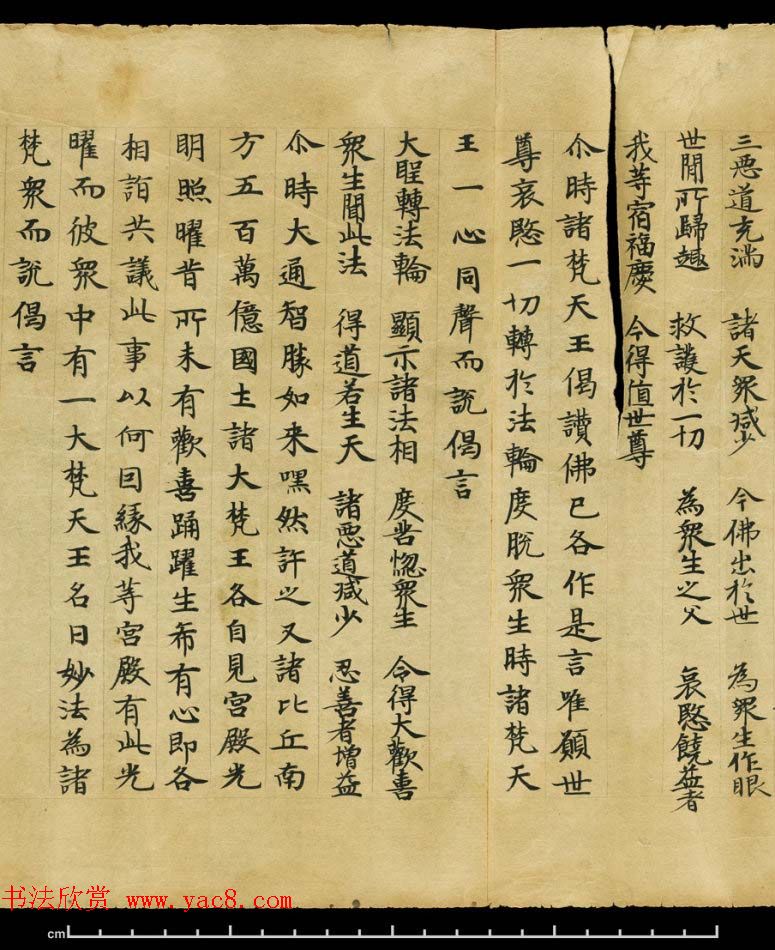 三惡道充滿 諸天衆減少 今佛出於世 為衆生作眼
世間所歸趣 救護於一切 為衆生之父 哀愍饒益者
我等宿福慶 今得值世尊
尒時諸梵天王偈讚佛已各作是言唯願世
尊哀愍一切轉於法輪度脫衆生時諸梵天
王一心同聲而說偈言
大聖轉法輪 顯示諸法相 度苦惱衆生 令得大歡喜
衆生聞此法 得道若生天 諸惡道減少 忍善者增益
尒時大通智勝如來嘿然許之又諸比丘南
方五百萬億國土諸大梵王各自見宮殿光
明照曜昔所未有歡喜踊躍生希有心即各
相詣共議此事以何因緣我等宮殿有此光
曜而彼衆中有一大梵天王名曰妙法為諸
梵衆而說偈言
书法欣赏 www.yac8.com
cm